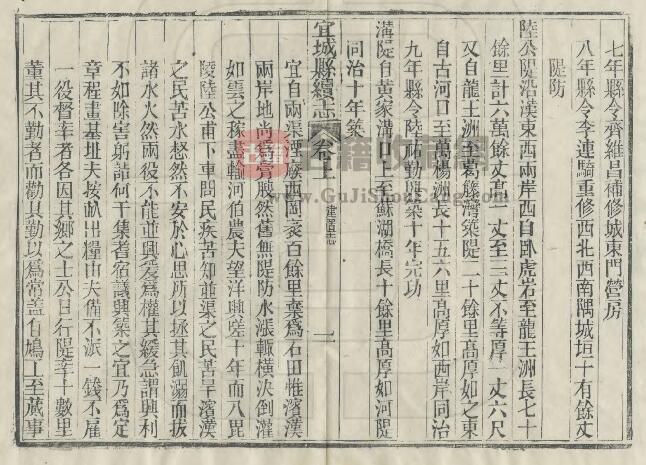 七年縣令齊維昌補修城東門營房
八年縣令李連騎重修西北西南隅城垣十有餘丈
隄防
陸公隄沿漢東西兩岸西自卧虎岩至龍王洲長七十
餘里計六萬餘丈髙一丈至三丈不等厚一丈六尺
又自龍王洲至葛藤灣築隄二十餘里髙厚如之東
自古河口至萬楊洲長十五六里髙厚如西岸同治
九年縣令陸祐勤興築十年完功
溝隄自黃家溝口上至蘇湖橋長十餘里髙厚如河隄
同治十年築
宜城縣續志 卷上 建置志 二
宜自兩渠湮廢西岡袤百餘里棄爲石田惟濱漢
兩岸地尚爲膏腴然舊無隄防水漲輒橫決倒灌
如雲之稼盡輸河伯農夫望洋興嗟十年而八毘
陵陸公甫下車問民疾苦知並渠之民苦旱濱漢
之民苦水惄然不安於心思所以拯其飢溺而拔
諸水火然兩役不能並興爰爲權其緩急謂興利
不如除害躬詣何干集耆宿議興築之宜乃爲定
章程畫基址夫按畝出糧由夫備不派一錢不雇
一役督率者各因其鄉之士公日行隄率十數里
董其不勤者而勸其勤以爲常盖自鳩工至蕆事
古籍收藏網
www.GuJiShouCang.com